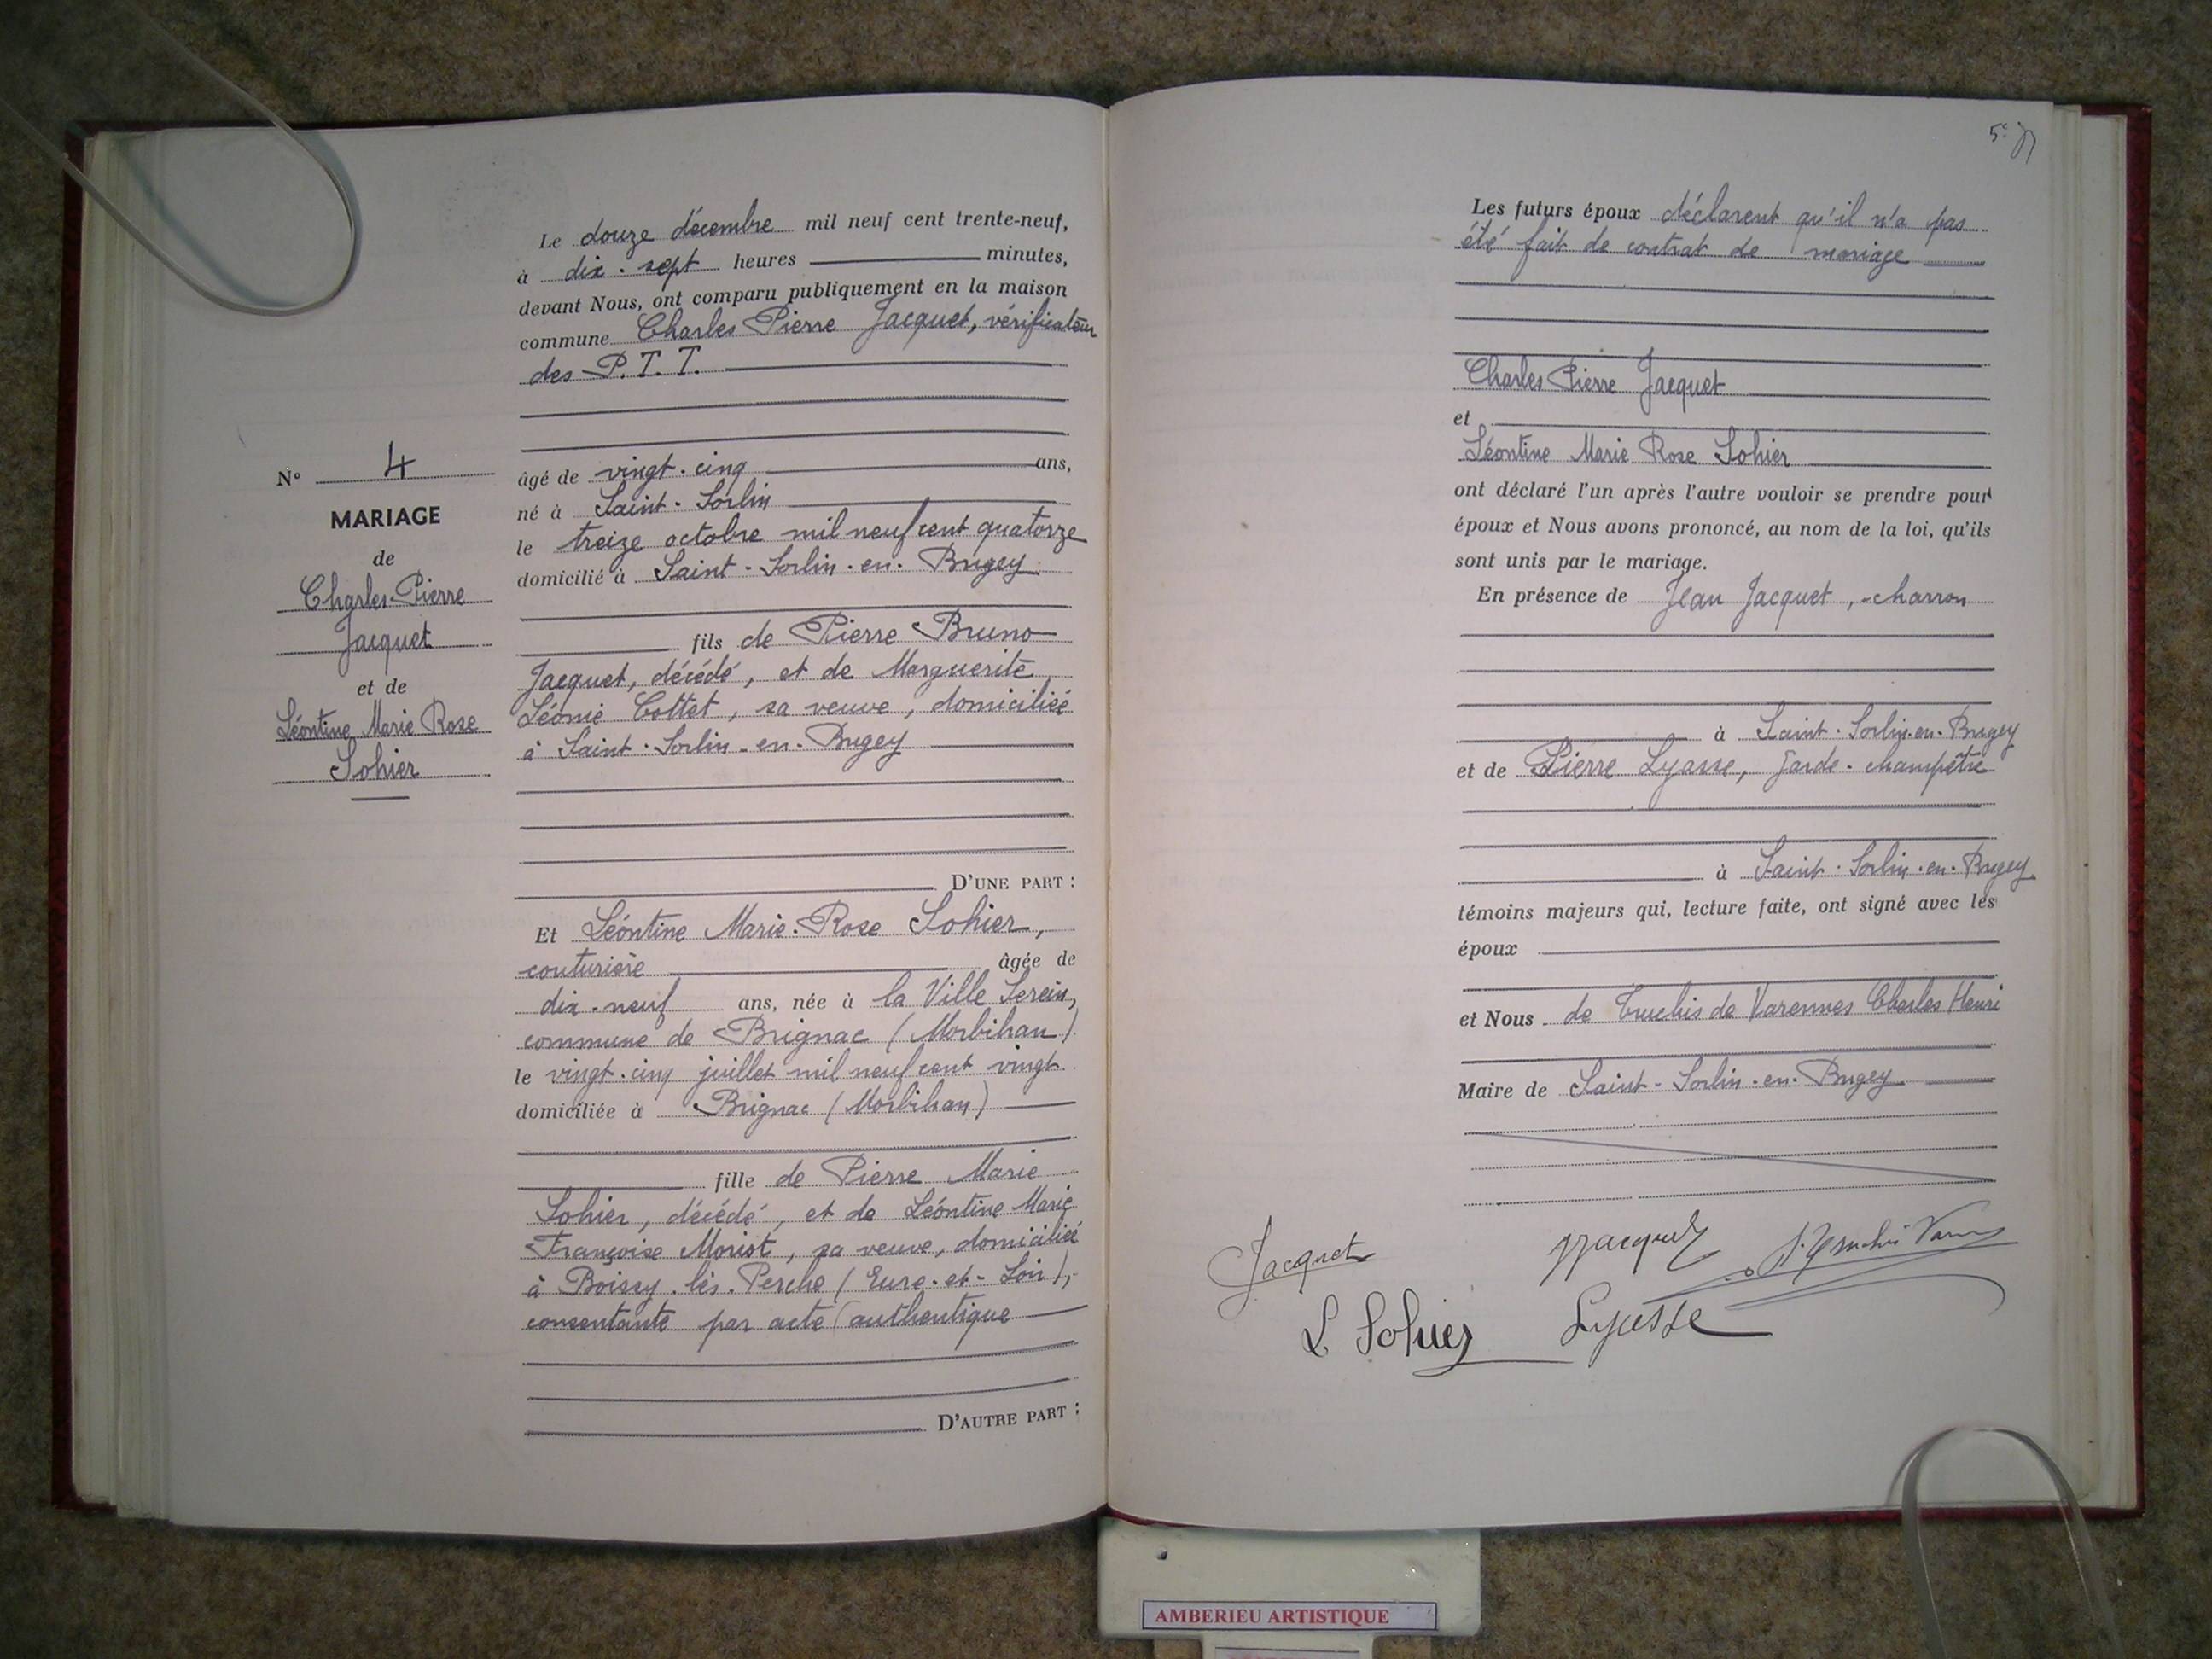 Le douze décembre mil neuf cent trente-neuf,
à dix-sept heures minutes,
devant Nous, ont comparu publiquement en la maison
commune Charles Pierre Jacquet, vérificateur
des P.T.T.
N° 4
MARIAGE
de
Charles Pierre
Jacquet
et de
Léontine Marie Rose
Sohier
âgé de vingt-cinq ans,
né à Saint-Sorlin
le treize octobre mil neuf cent quatorze
domicilié à Saint-Sorlin-en-Bugey
fils de Pierre Bruno
Jacquet, décédé, et de Marguerite
Léonie Cottet, sa veuve, domiciliée
à Saint-Sorlin-en-Bugey
D'UNE PART :
Et Léontine Marie-Rose Sohier,
couturière âgée de
dix-neuf ans, née à la Ville Serein,
commune de Brignac (Morbihan)
le vingt-cinq juillet mil neuf cent vingt
domiciliée à Brignac (Morbihan)
fille de Pierre Marie
Sohier, décédé, et de Léontine Marie
Françoise Moriot, sa veuve, domiciliée
à Boissy-lès-Perche (Eure-et-Loir),
consentante par acte authentique
D'AUTRE PART :
Les futurs époux déclarent qu'il n'a pas
été fait de contrat de mariage
Charles Pierre Jacquet
et
Léontine Marie Rose Sohier
ont déclaré l'un après l'autre vouloir se prendre pour
époux et Nous avons prononcé, au nom de la loi, qu'ils
sont unis par le mariage.
En présence de Jean Jacquet, charron
à Saint-Sorlin-en-Bugey
et de Pierre Lyasse, garde-champêtre
à Saint-Sorlin-en-Bugey
témoins majeurs qui, lecture faite, ont signé avec les
époux
et Nous de Truchis de Varennes Charles Henri
Maire de Saint-Sorlin-en-Bugey
Jacquet
L. Sohier
Lyasse
AMBERIEU ARTISTIQUE